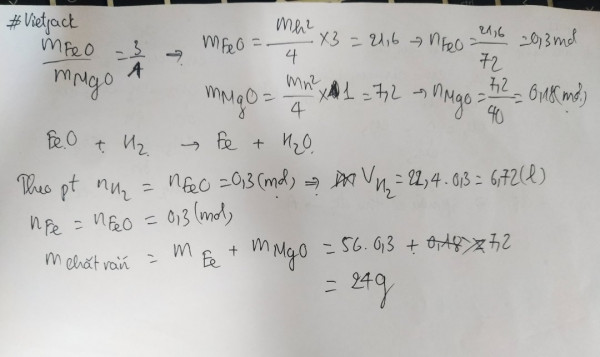 #Vietjack
mFeO/mMgO = 3/1 → mFeO = mh²/4 × 3 = 21,6 → nFeO = 21,6/72 = 0,3 mol
mMgO = mh²/4 × 1 = 7,2 → nMgO = 7,2/40 = 0,18 (mol)
FeO + H₂ → Fe + H₂O
Theo pt nH₂ = nFeO = 0,3 (mol) ⇒ VH₂ = 22,4 . 0,3 = 6,72 (l)
nFe = nFeO = 0,3 (mol)
m chất rắn = mFe + mMgO = 56. 0,3 + 7,2
= 24g